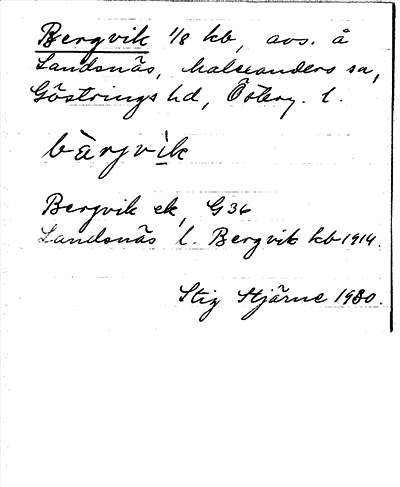 Bergvik 1/8 kb, avs. å
Landsnäs, Malexanders sn,
Göstrings hd, Östery. l.
bàrjvìk
Bergvik ek, G36
Landsnäs l. Bergvik kb 1914.
Stig Stjärne 1980.